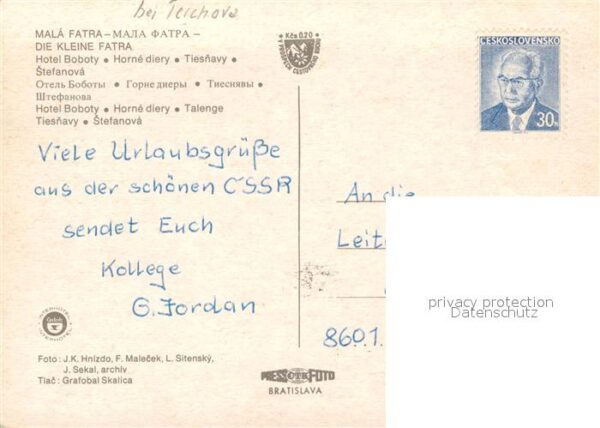 bei Terchova
MALÁ FATRA – МАЛА ФАТРА –
DIE KLEINE FATRA
Hotel Boboty • Horné diery • Tiesňavy •
Štefanová
Отель Боботы • Горне диеры • Тиеснявы •
Штефанова
Hotel Boboty • Horné diery • Talenge
Tiesňavy • Štefanová
Kčs 0,20
ČESKOSLOVENSKO
30h
Viele Urlaubsgrüße
aus der schönen ČSSR
sendet Euch
Kollege
G. Jordan
An die
Leit
8601
privacy protection
Datenschutz
Foto: J.K. Hnízdo, F. Maleček, L. Sitenský,
J. Sekal, archív
Tlač: Grafobal Skalica
PRESSFOTO
ČTK
BRATISLAVA